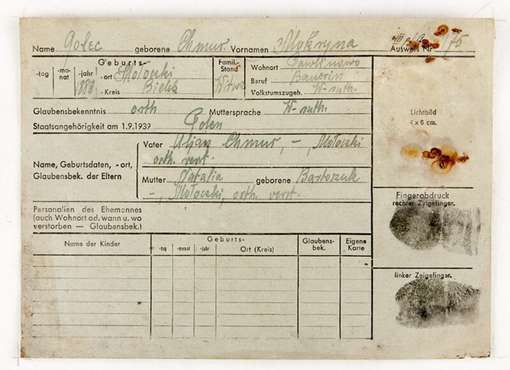 Name Golec geborene Chmur Vornamen Mokryna Ausweis Nr. 75
Geburts- Famil. Stand Wohnort
-tag -mo-nat -jahr -ort Mołoczki Beruf Bäuerin
-Kreis Bielsk Volkstumszugeh. W-ruth.
Glaubensbekenntnis orth Muttersprache W-ruth. Lichtbild
Staatsangehörigkeit am 1.9.1939 Polen 4 x 6 cm.
Vater Chmur, -, Mołoczki
orth. verst.
Name, Geburtsdaten, -ort,
Glaubensbek. der Eltern
Mutter Natalia geborene Bartoszuk
-, Mołoczki, orth. verst.
Personalien des Ehemannes
(auch Wohnort od. wann u. wo
verstorben — Glaubensbek.)
Fingerabdruck
rechter Zeigefinger.
Name der Kinder Geburts- Glaubens-bek. Eigene Karte
-tg -monat -jahr Ort (Kreis)
linker Zeigefinger.